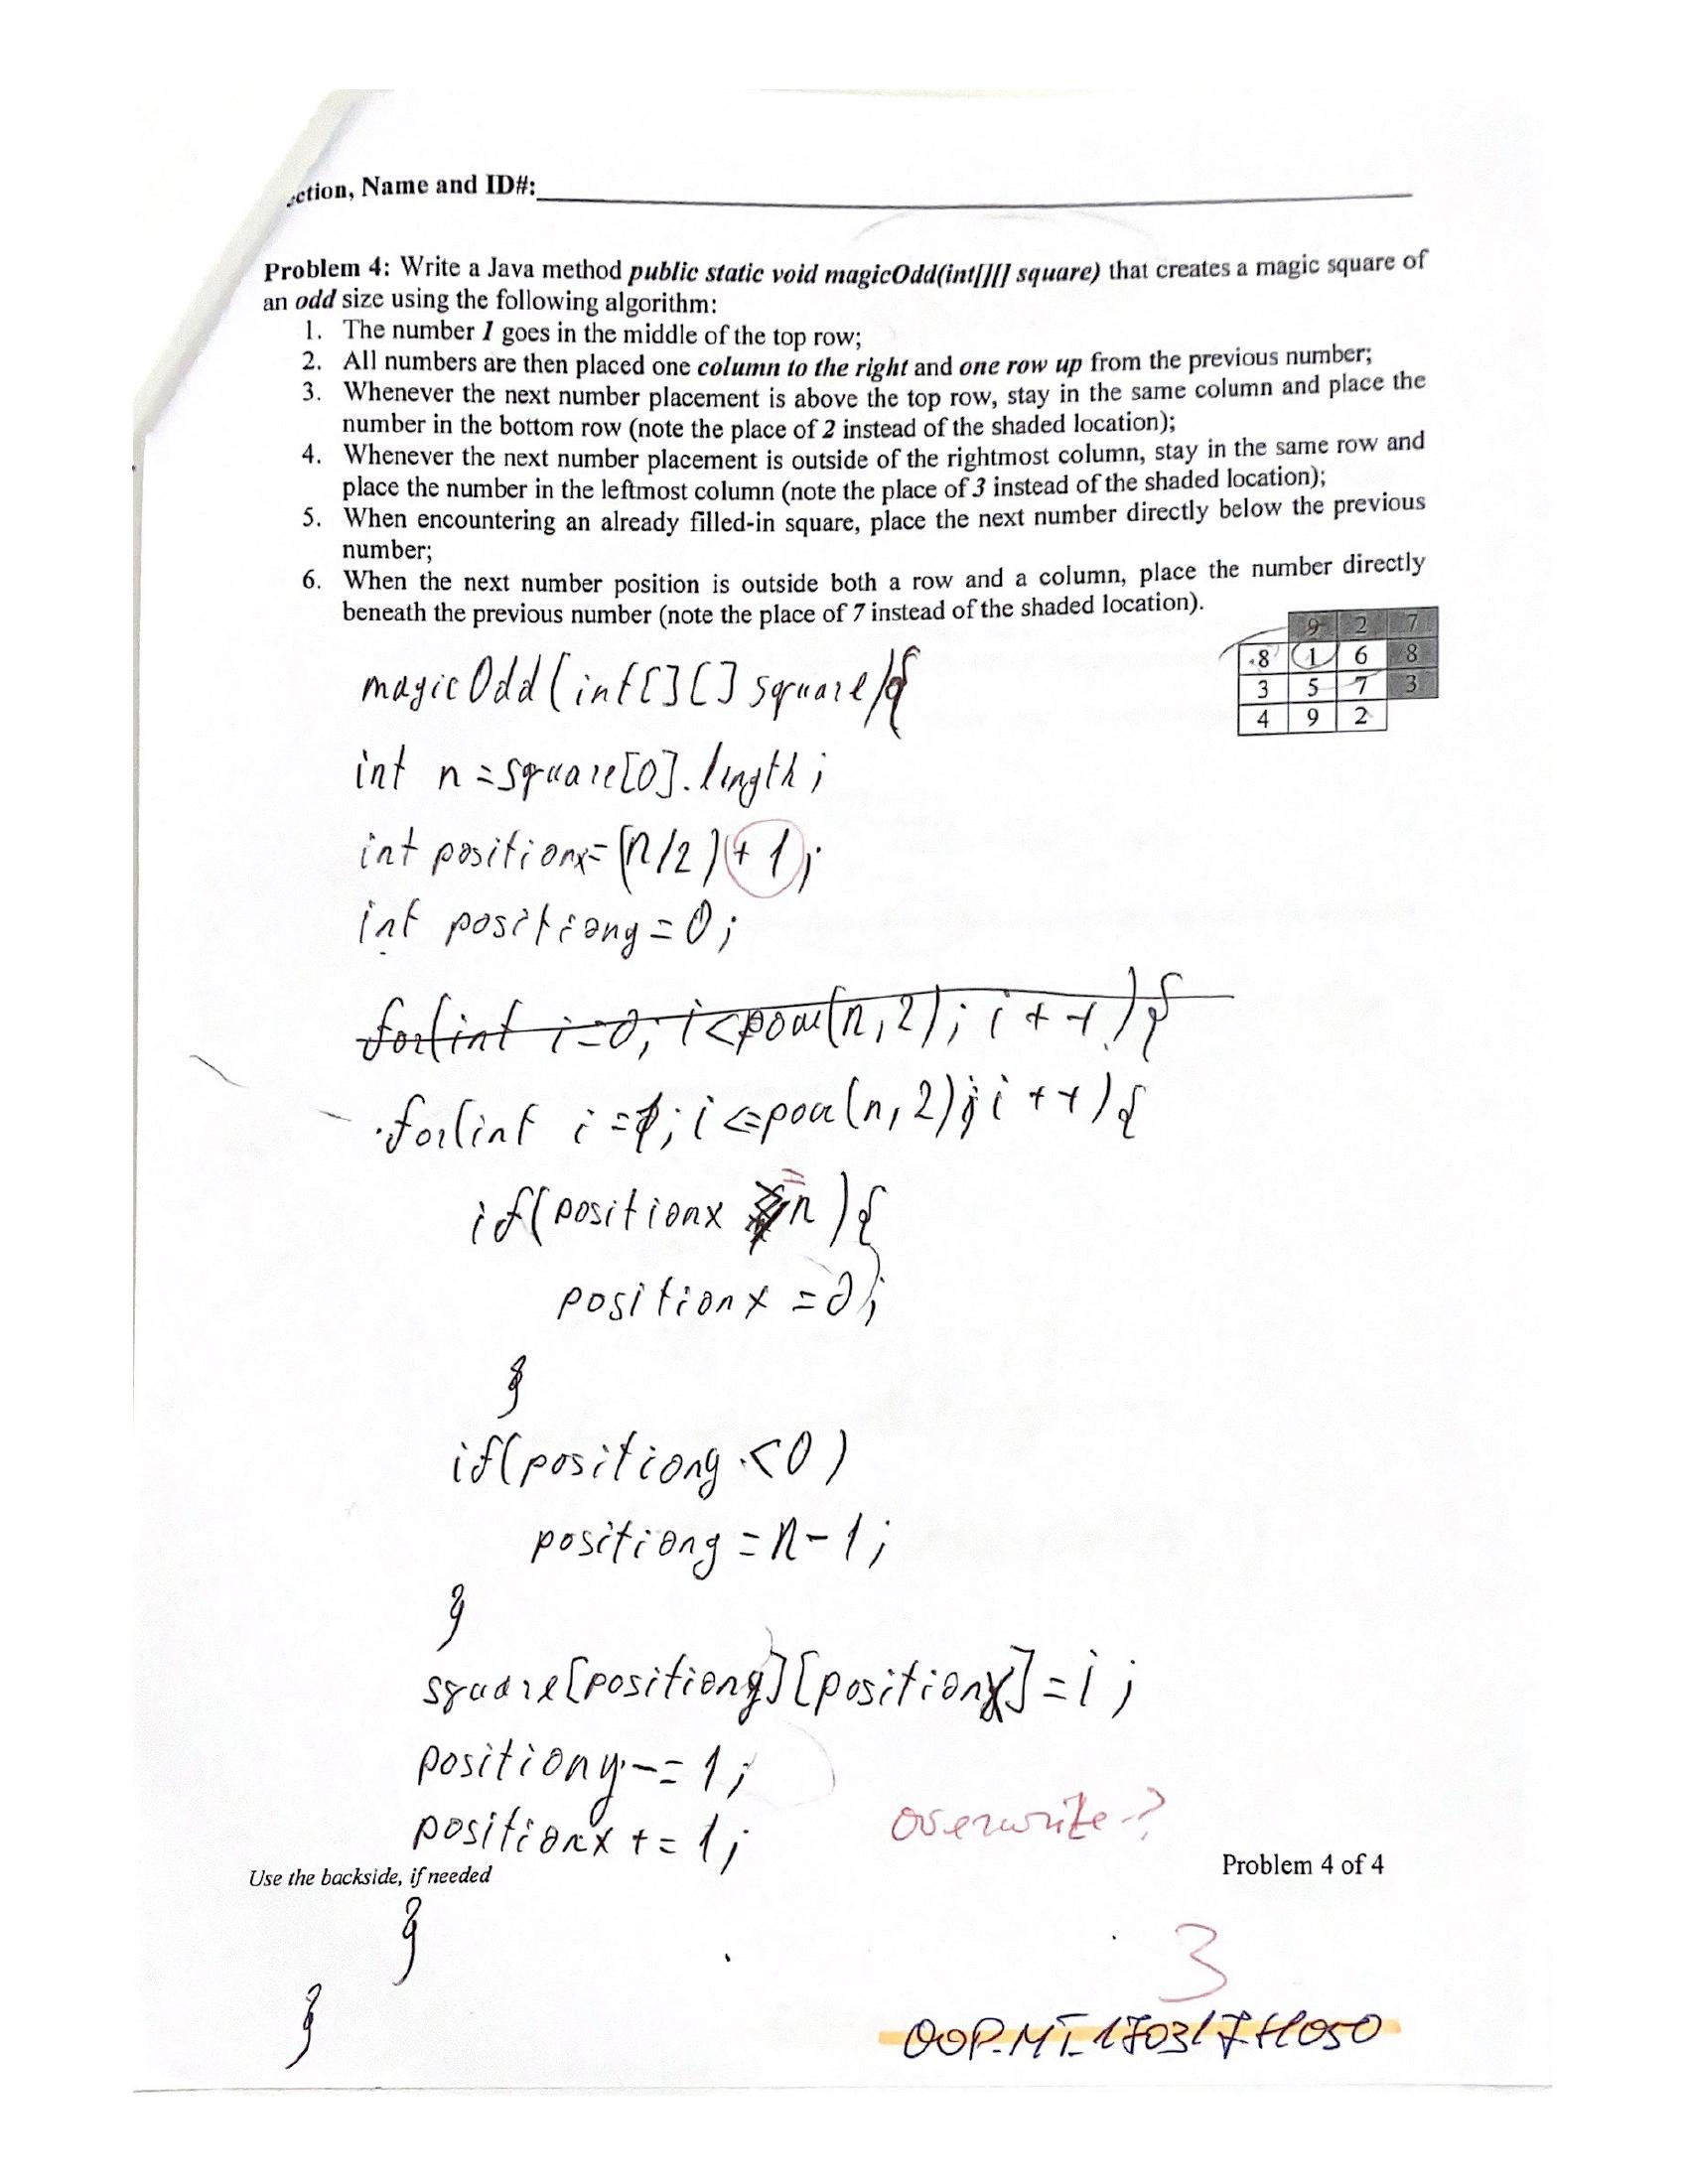 ction, Name and ID#:
Problem 4: Write a Java method public static void magicOdd(int[][] square) that creates a magic square of
an odd size using the following algorithm:
1. The number 1 goes in the middle of the top row;
2. All numbers are then placed one column to the right and one row up from the previous number;
3. Whenever the next number placement is above the top row, stay in the same column and place the
number in the bottom row (note the place of 2 instead of the shaded location);
4. Whenever the next number placement is outside of the rightmost column, stay in the same row and
place the number in the leftmost column (note the place of 3 instead of the shaded location);
5. When encountering an already filled-in square, place the next number directly below the previous
number;
6. When the next number position is outside both a row and a column, place the number directly
beneath the previous number (note the place of 7 instead of the shaded location).
9 2 7
8 1 6 8
3 5 7 3
4 9 2
magicOdd(int[][] square){
int n=square[0].length;
int positionx=(n/2)+1;
int positiony=0;
for(int i=0; i<pow(n,2); i++){
for(int i=1; i<=pow(n,2); i++){
if(positionx = n){
positionx =0;
}
if(positiony <0)
positiony =n-1;
}
square[positiony][positionx]=i;
positiony-=1;
positionx+=1;
overwrite?
Use the backside, if needed
Problem 4 of 4
}
3
}